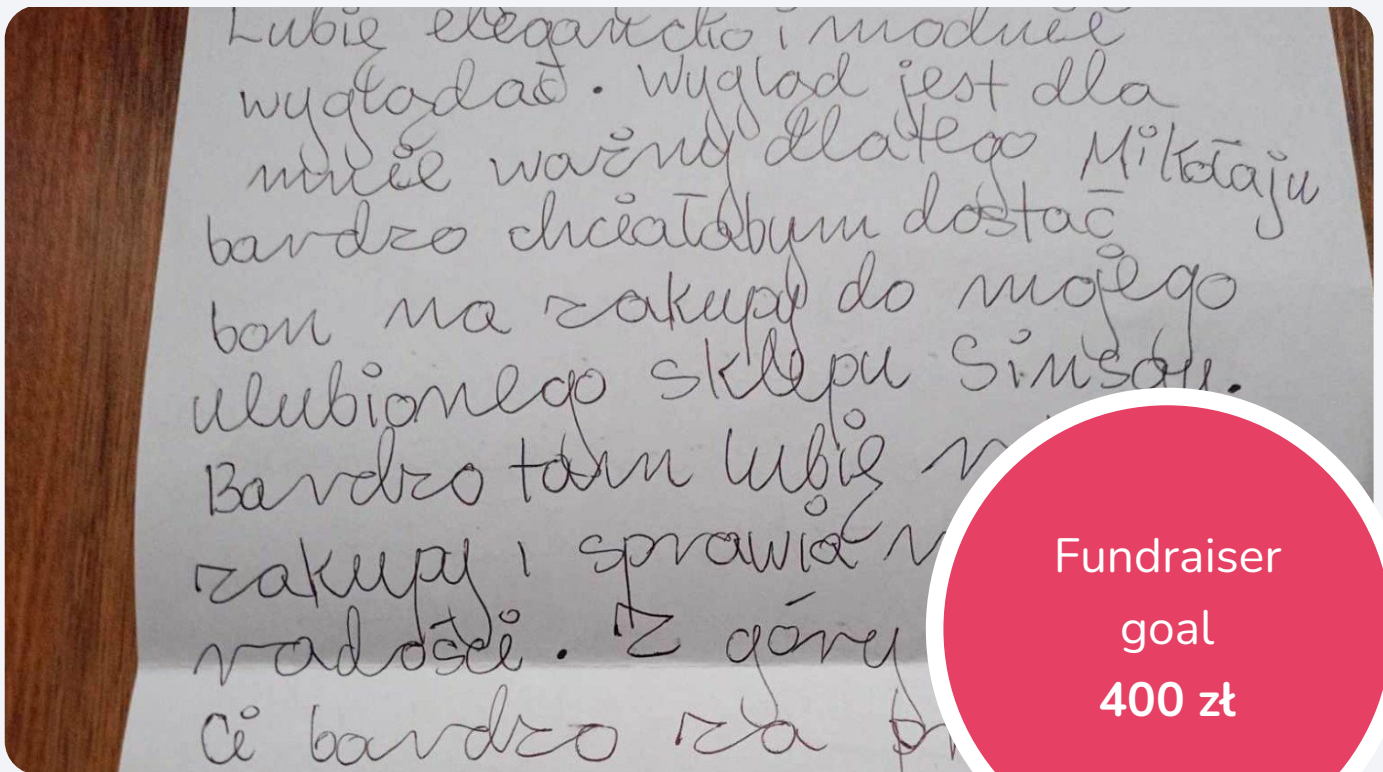 Lubię elegancko i modnie
wyglądać. Wygląd jest dla
mnie ważny dlatego Mikołaju
bardzo chciałabym dostać
bon na zakupy do mojego
ulubionego sklepu Sinsay.
Bardzo tam lubię
zakupy i sprawia
radości. Z góry
Ci bardzo za
Fundraiser
goal
400 zł